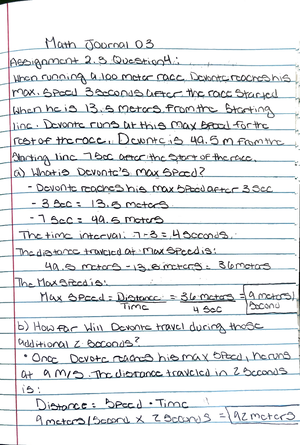 Math Journal 03
Assignment 2.3 Question 4:
When running a 100 meter race, Devonte reaches his
max. speed 3 seconds after the race started
when he is 13.5 meters from the starting
line. Devonte runs at this max speed for the
rest of the race. Devonte is 49.5 m from the
starting line 7 sec after the start of the race.
a) What is Devonte's max speed?
- Devonte reaches his max speed after 3 sec
- 3 sec = 13.5 meters
- 7 sec = 49.5 meters
The time interval: 7-3 = 4 seconds.
The distance traveled at max speed is:
49.5 meters - 13.5 meters = 36 meters
The Max Speed is:
Max Speed = Distance / Time = 36 meters / 4 sec = 9 meters / second
b) How far will Devonte travel during those
additional 2 seconds?
• Once Devote reaches his max speed, he runs
at 9 m/s. The distance traveled in 2 seconds
is:
Distance = Speed • Time
9 meters/second x 2 seconds = 92 meters